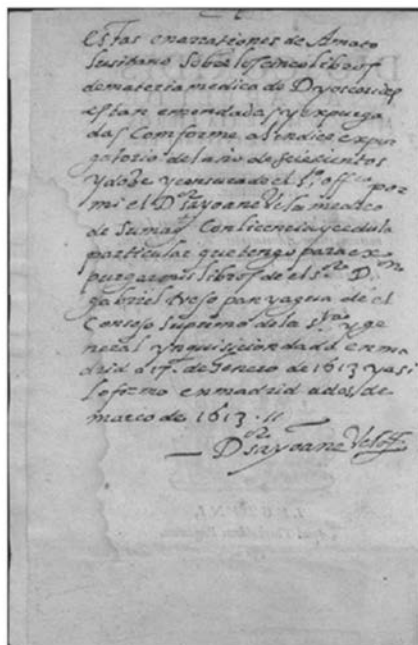 estas enarrationes de Amato
lusitano sobre los cinco libros
de materia medica de Dyoscorides
estan emendadas y expurga
das conforme al indice expur
gatorio del año de seiscientos
y doze y censurado el s.to officio por
mi el D.or medico
de Con licencia y cedula
particular que tengo para ex
purgar mis libros de el s.or D.
gabriel panyagua de el
Consejo supremo de la s.ta y ge
neral ynquisicion dada en ma
drid a 17. de Henero de 1613 y asi
lo firmo en madrid a dos de
março de 1613.
D.or